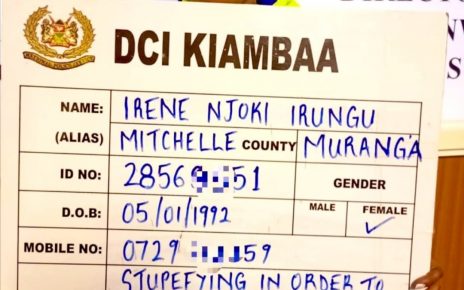 DCI KIAMBAA
NAME: IRENE NJOKI IRUNGU
(ALIAS) MITCHELLE COUNTY MURANG'A
ID NO: 2856 51 GENDER
D.O.B: 05/01/1992 MALE FEMALE
MOBILE NO: 0729 59
STUPEFYING IN ORDER TO